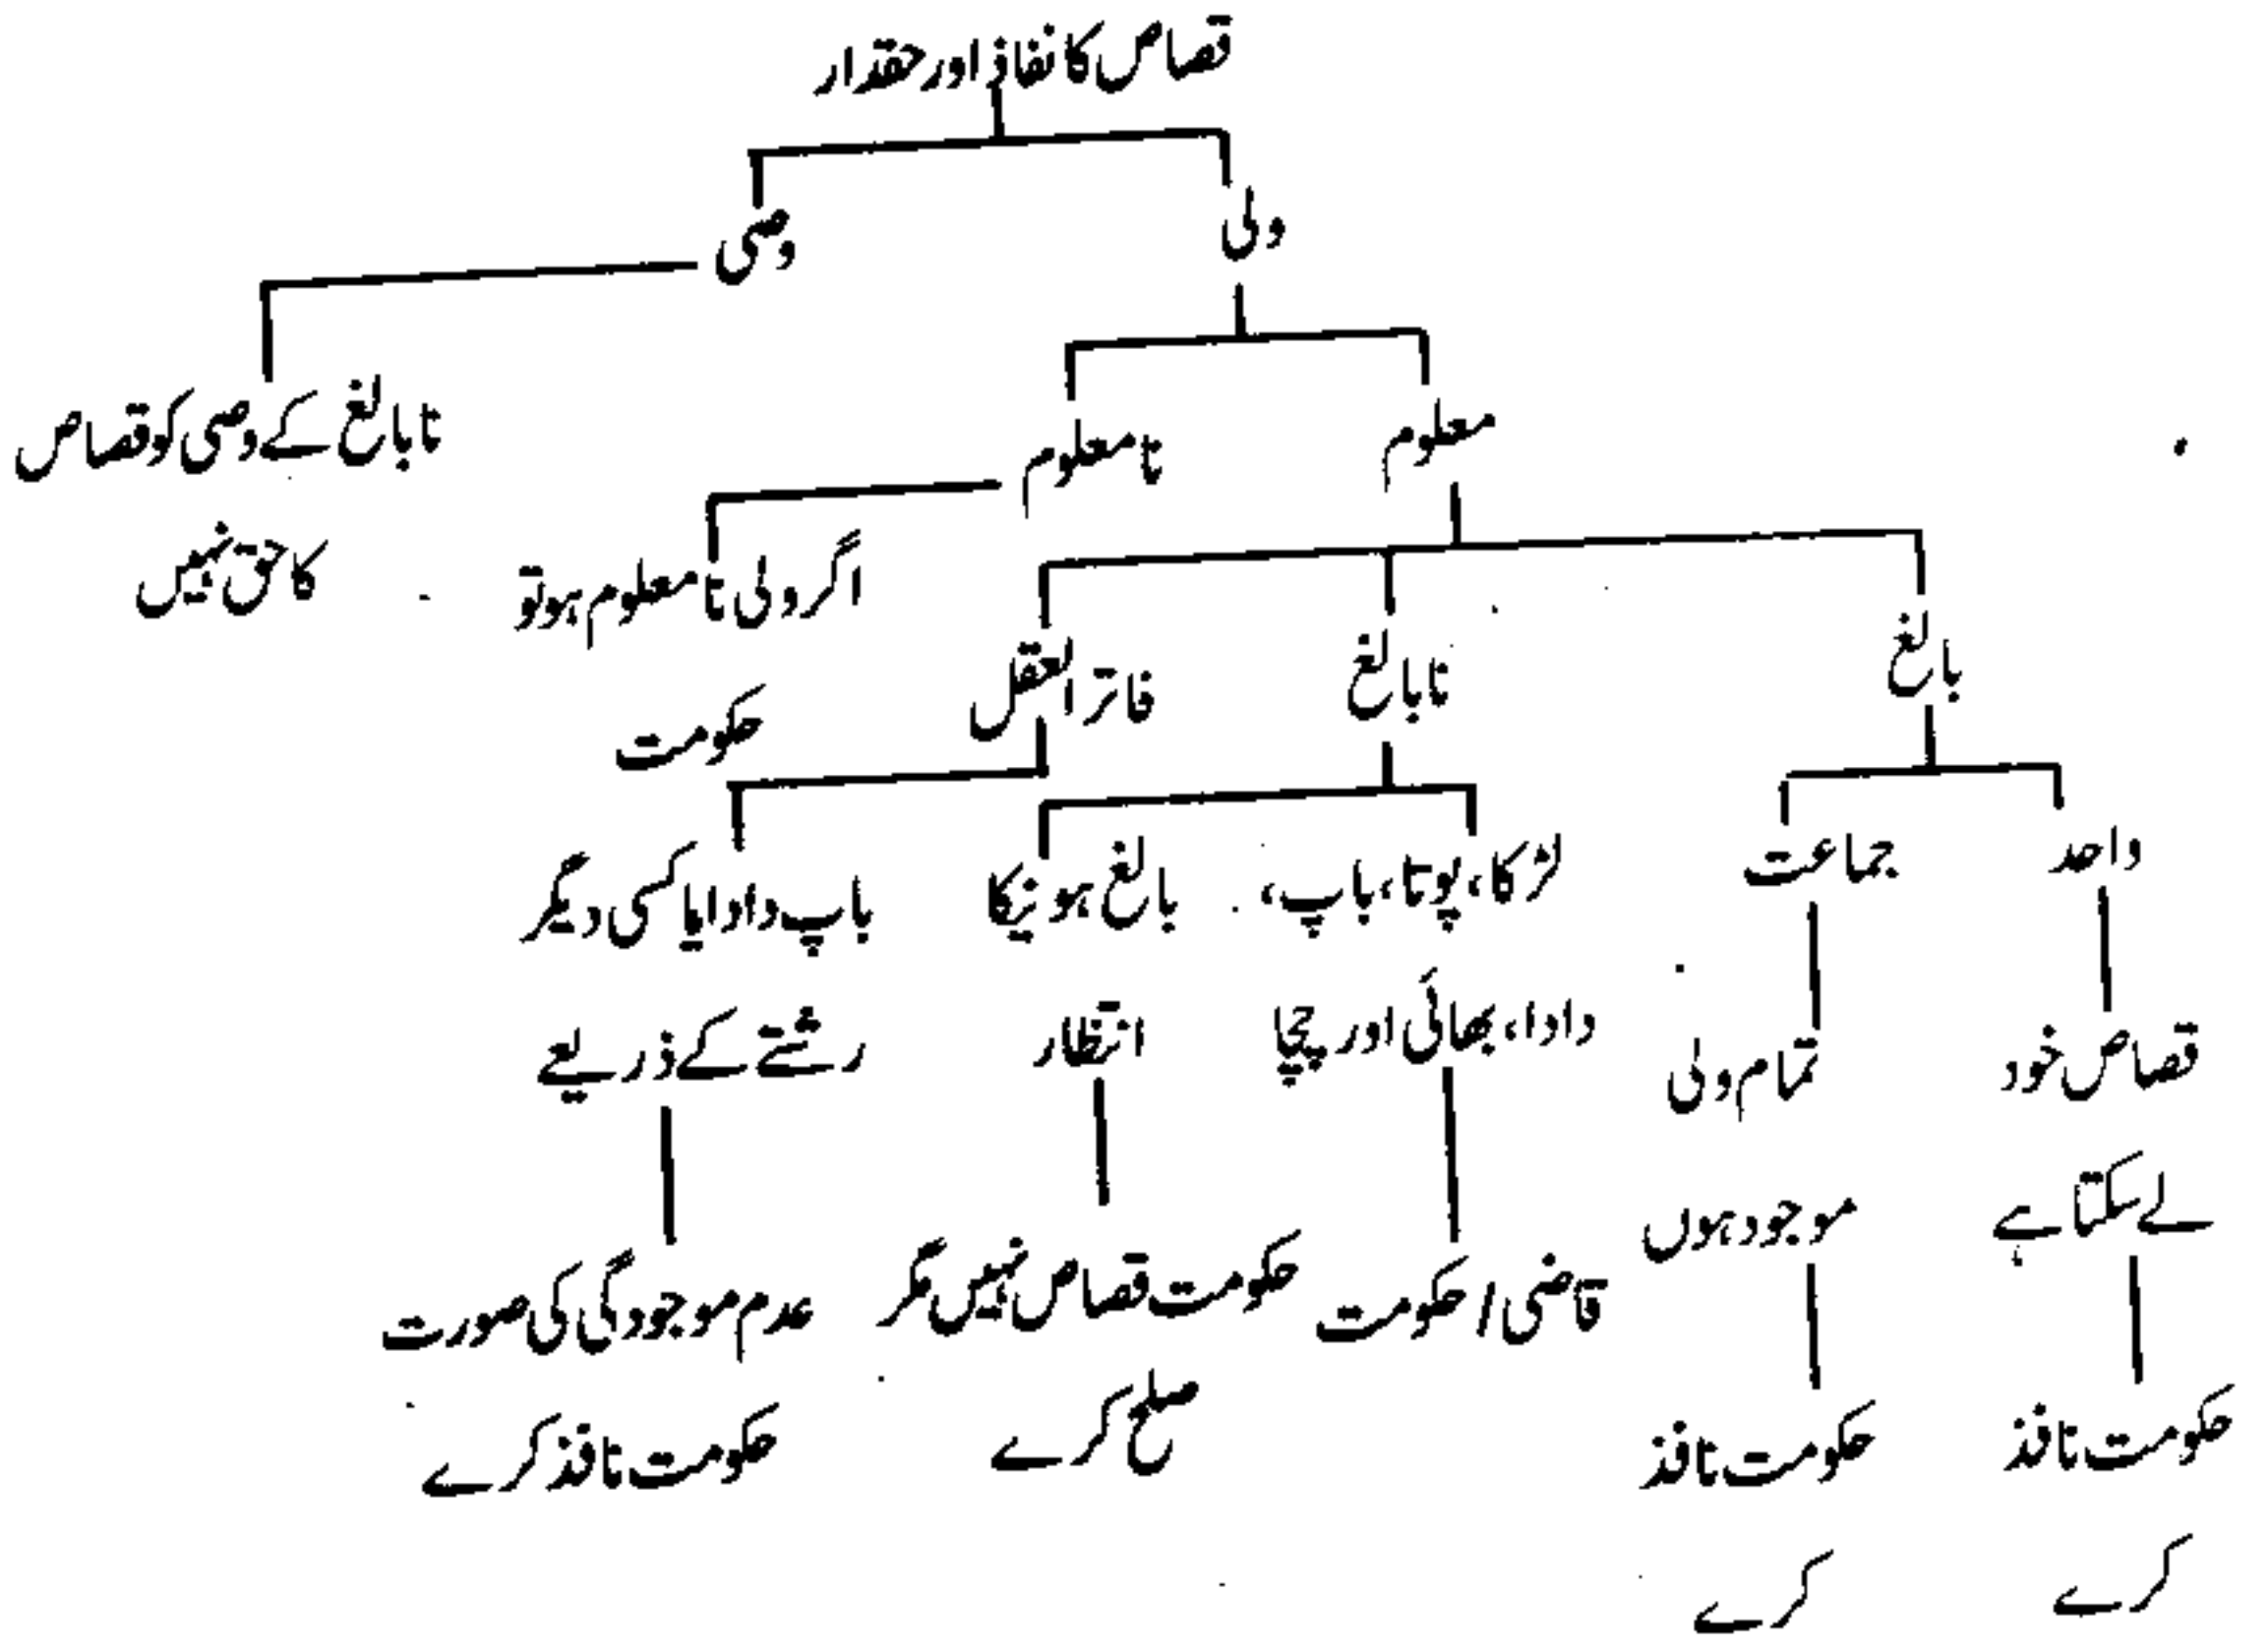 قصاص کا نفاذ اور حقدار
ولی
وصی
معلوم
نامعلوم
نابالغ کے وصی کو قصاص
کا حق نہیں
اگر ولی نامعلوم ہو تو
حکومت
بالغ
نابالغ
فاتر العقل
واحد
جماعت
لڑکا، پوتا، باپ،
دادا، بھائی اور چچا
بالغ ہونیکا
انتظار
باپ دادا یا کسی دیگر
رشتے کے ذریعے
قصاص خود
لے سکتا ہے
تمام ولی
موجود ہوں
قاضی / حکومت
حکومت قصاص نہیں مگر
صلح کرے
عدم موجودگی کی صورت
حکومت نافذ کرے
حکومت نافذ
کرے
حکومت نافذ
کرے